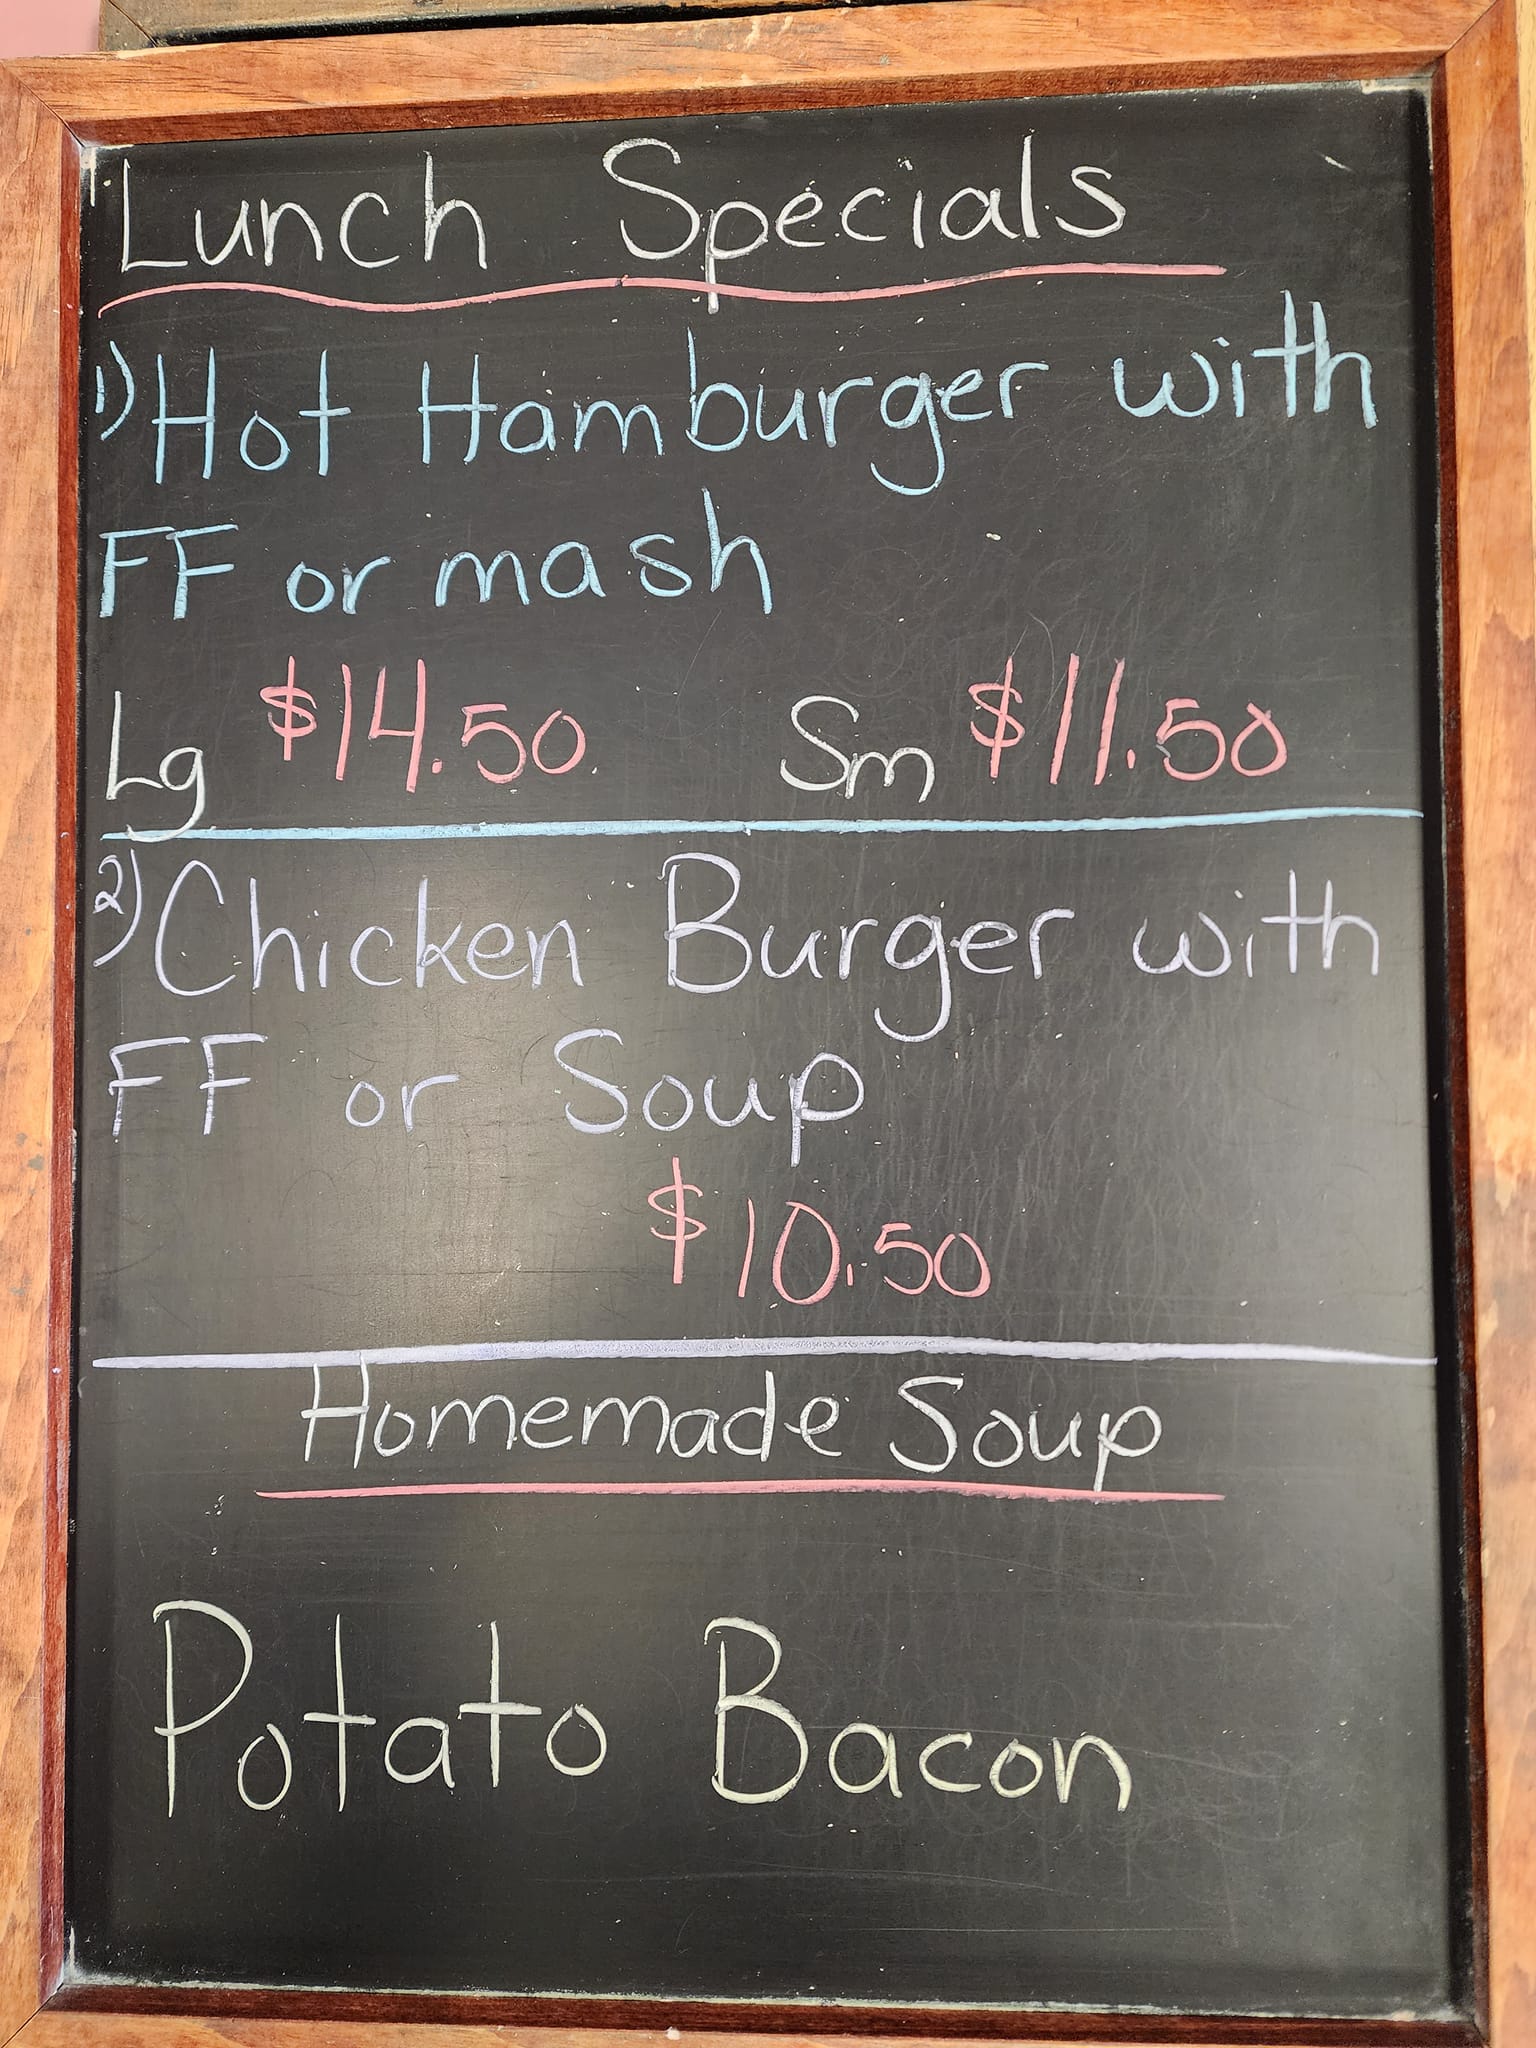 Lunch Specials
1) Hot Hamburger with
FF or mash
Lg $14.50 Sm $11.50
2) Chicken Burger with
FF or Soup
$10.50
Homemade Soup
Potato Bacon